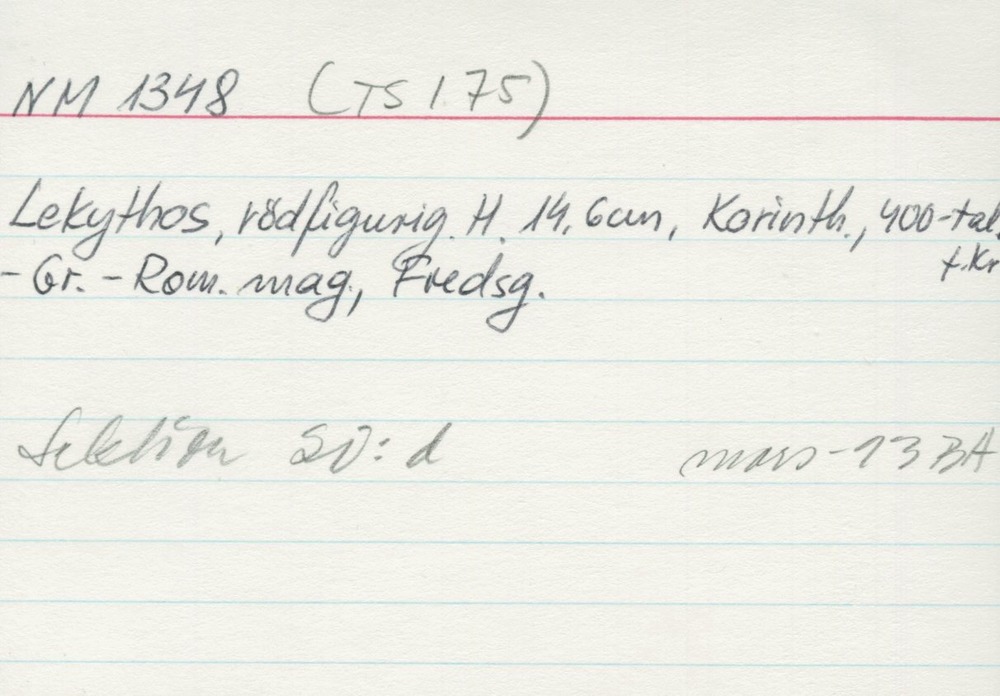 NM 1348 (TS 175)
Lekythos, rödfigurig. H. 14,6cm, Korinth., 400-tal.
f.Kr
- Gr. - Rom. mag, Fredsg.
Sektion SV: d mars -93 BA